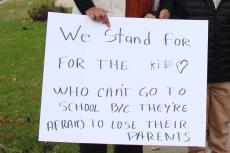 We Stand For
FOR THE KiDS♡
WHO CAN'T GO TO
SCHOOL B/C THEY'RE
AFRAID TO LOSE THEIR
PARENTS